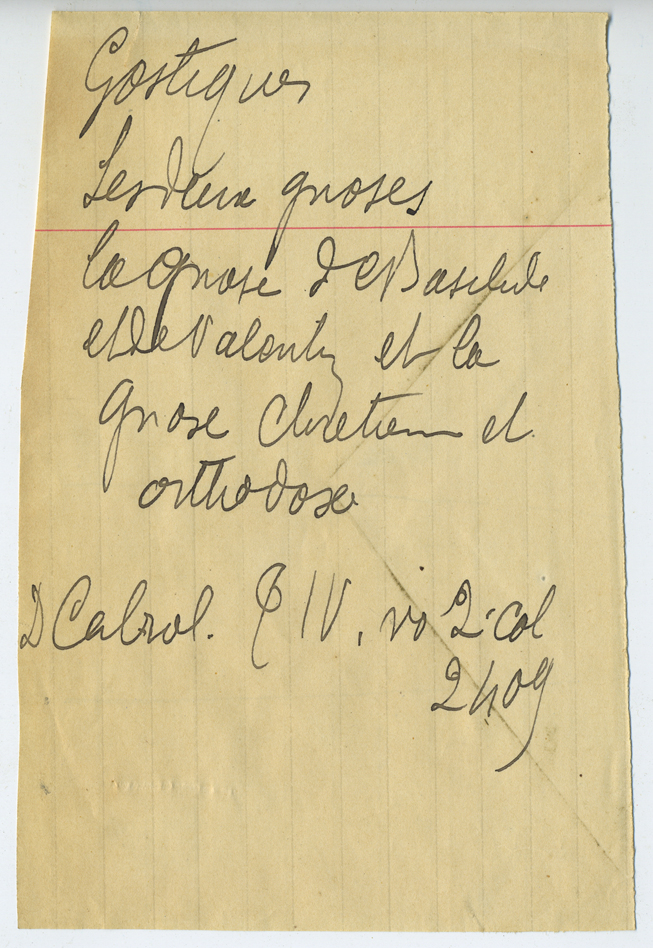 Gostiques
Les deux gnoses
la gnose de Basilide
et de Valentin et la
gnose Chretienn et
orthodoxe
D Cabrol. T IV, vo 2 col
2409